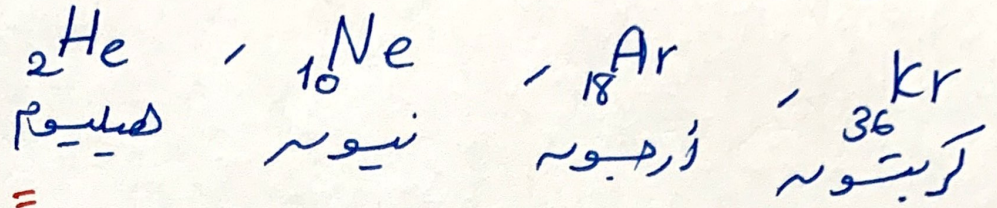 ₂He ، ₁₀Ne ، ₁₈Ar ، ₃₆Kr
هيليوم نيون أرجون كربتون
=